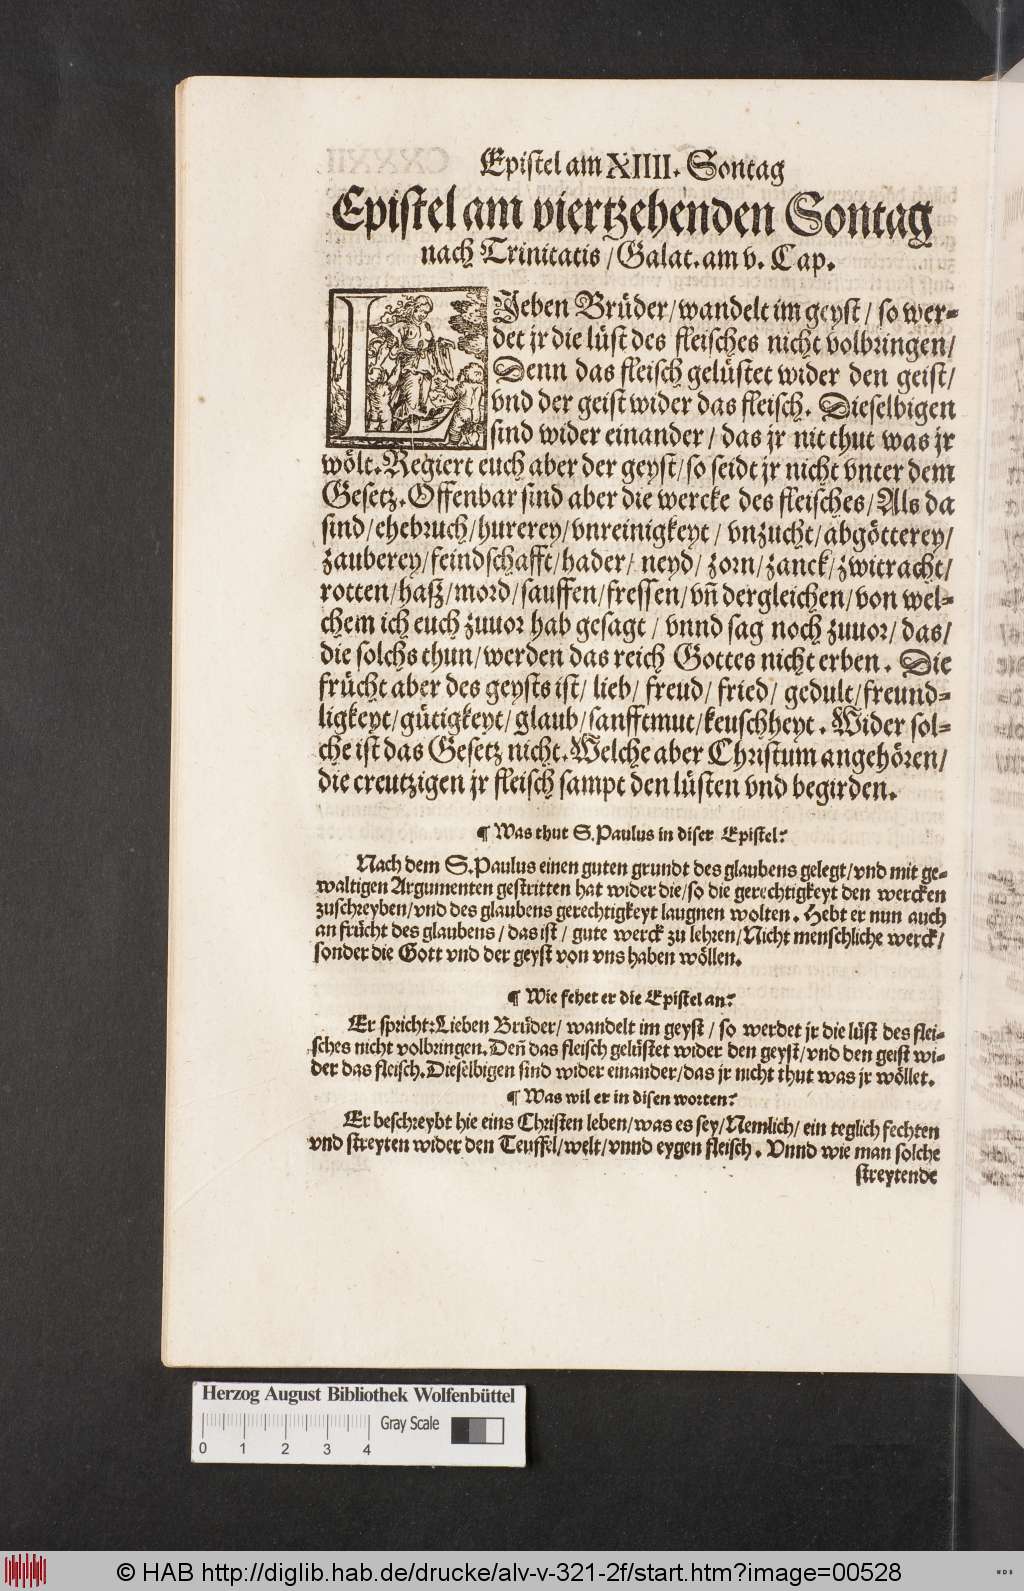 Epistel am XIIII. Sontag
Epistel am viertzehenden Sontag
nach Trinitatis / Galat. am v. Cap.
LJeben Brüder / wandelt im geyst / so wer=
det jr die lüst des fleisches nicht volbringen /
Denn das fleisch gelüstet wider den geist /
vnd der geist wider das fleisch. Dieselbigen
sind wider einander / das jr nit thut was jr
wölt. Regiert euch aber der geyst / so seidt jr nicht vnter dem
Gesetz. Offenbar sind aber die wercke des fleisches / Als da
sind / ehebruch / hurerey / vnreinigkeyt / vnzucht / abgötterey /
zauberey / feindschafft / hader / neyd / zorn / zanck / zwitracht /
rotten / haß / mord / sauffen / fressen / vñ dergleichen / von wel=
chem ich euch zuuor hab gesagt / vnnd sag noch zuuor / das /
die solchs thun / werden das reich Gottes nicht erben. Die
frücht aber des geysts ist / lieb / freud / fried / gedult / freund=
ligkeyt / gütigkeyt / glaub / sanfftmut / keuschheyt. Wider sol=
che ist das Gesetz nicht. Welche aber Christum angehören /
die creutzigen jr fleisch sampt den lüsten vnd begirden.
¶ Was thut S. Paulus in diser Epistel?
Nach dem S. Paulus einen guten grundt des glaubens gelegt / vnd mit ge=
waltigen Argumenten gestritten hat wider die / so die gerechtigkeyt den wercken
zuschreyben / vnd des glaubens gerechtigkeyt laugnen wolten. Hebt er nun auch
an frücht des glaubens / das ist / gute werck zu lehren / Nicht menschliche werck /
sonder die Gott vnd der geyst von vns haben wöllen.
¶ Wie fehet er die Epistel an?
Er spricht: Lieben Brüder / wandelt im geyst / so werdet jr die lüst des flei=
sches nicht volbringen. Deñ das fleisch gelüstet wider den geyst / vnd den geist wi=
der das fleisch. Dieselbigen sind wider einander / das jr nicht thut was jr wöllet.
¶ Was wil er in disen worten?
Er beschreybt hie eins Christen leben / was es sey / Nemlich / ein teglich fechten
vnd streyten wider den Teuffel / welt / vnnd eygen fleisch. Vnnd wie man solche
streytende
Herzog August Bibliothek Wolfenbüttel
Gray Scale
0 1 2 3 4
© HAB http://diglib.hab.de/drucke/alv-v-321-2f/start.htm?image=00528